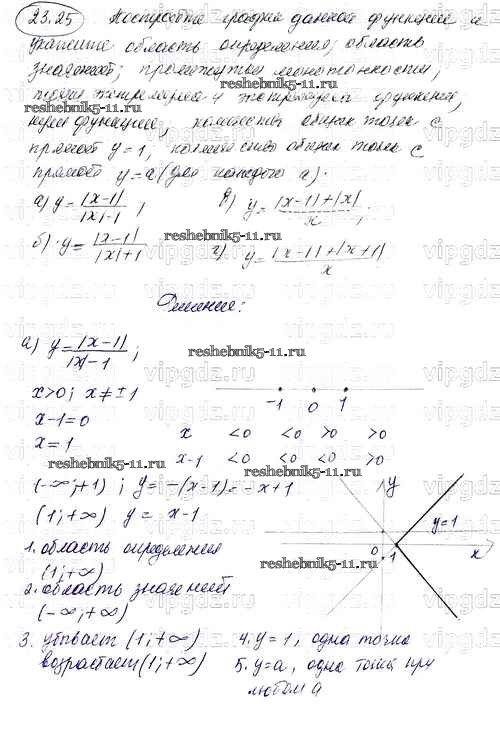 23.25 Постройте график данной функции и
укажите область определения; область
значений; промежутки монотонности;
точки экстремума и экстремумы функции,
нули функции, количество общих точек с
прямой y=1, количество общих точек с
прямой y=a (для каждого a).
а) y = |x-1| / |x|-1 ; в) y = |x-1|+|x| / x ;
б) y = |x-1| / |x|+1 г) y = |x-1|+|x+1| / x
Решение:
а) y = |x-1| / |x|-1 ;
x>0; x≠±1
-1 0 1
x-1=0
x=1
x <0 <0 >0 >0
x-1 <0 <0 <0 >0
(-∞;+1) ; y= -(x-1) = -x+1
(1;+∞) y= x-1
y
y=1
0 1 x
1. область определения
(1;+∞)
2. область значений
(-∞;+∞)
3. убывает (1;+∞)
возрастает (1;+∞)
4. y=1, одна точка
5. y=a, одна точка при
любом a
reshebnik5-11.ru
reshebnik5-11.ru
reshebnik5-11.ru
reshebnik5-11.ru
reshebnik5-11.ru
reshebnik5-11.ru
reshebnik5-11.ru
vipgdz.ru